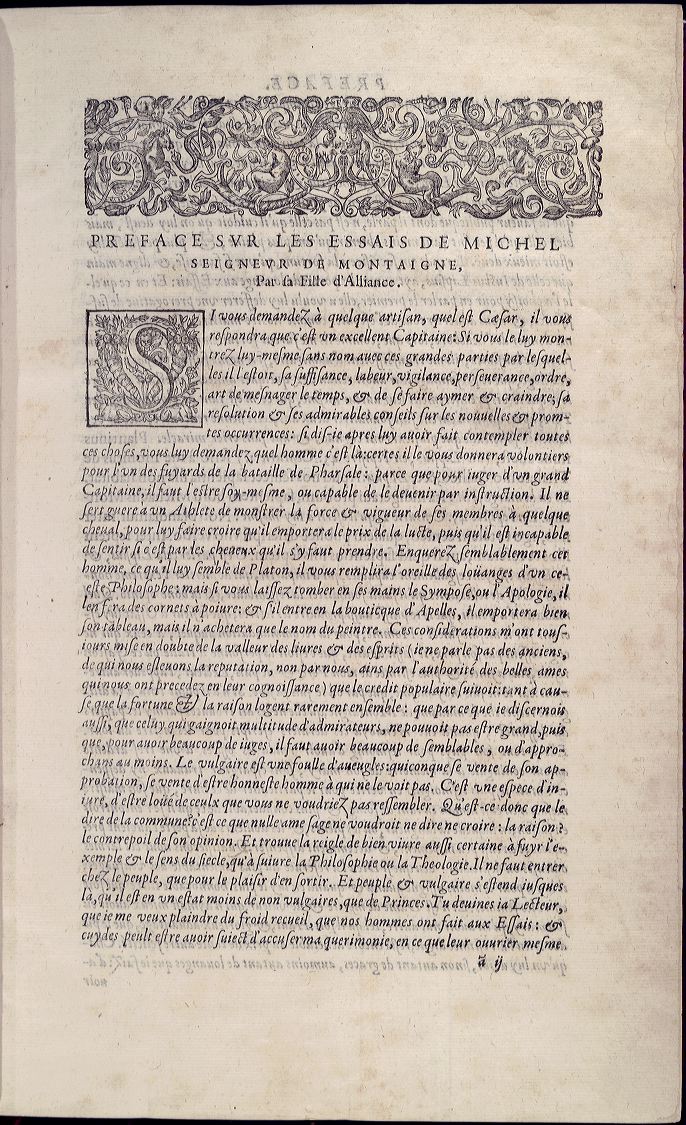 PREFACE SVR LES ESSAIS DE MICHEL
SEIGNEVR DE MONTAIGNE,
Par sa Fille d'Alliance.
SI vous demandez à quelque artisan, quel est Cæsar, il vous
respondra que c'est vn excellent Capitaine: Si vous le luy mon-
trez luy-mesme sans nom auec ces grandes parties par lesquel-
les il l'estoit, sa suffisance, labeur, vigilance, perseuerance, ordre,
art de mesnager le temps, & de se faire aymer & craindre; sa
resolution & ses admirables conseils sur les nouuelles & prom-
tes occurrences: si dis-ie apres luy auoir fait contempler toutes
ces choses, vous luy demandez quel homme c'est là: certes il le vous donnera volontiers
pour l'vn des fuyards de la bataille de Pharsale: parce que pour iuger d'vn grand
Capitaine, il faut l'estre soy-mesme, ou capable de le deuenir par instruction. Il ne
sert guere à vn Athlete de monstrer la force & vigueur de ses membres à quelque
cheual, pour luy faire croire qu'il emportera le prix de la lucte, puis qu'il est incapable
de sentir si c'est par les cheueux qu'il s'y faut prendre. Enquerez semblablement cet
homme, ce qu'il luy semble de Platon, il vous remplira l'oreille des loüanges d'vn ce-
leste Philosophe: mais si vous laissez tomber en ses mains le Sympose, ou l'Apologie, il
en fera des cornets à poiure: & s'il entre en la bouticque d'Apelles, il emportera bien
son tableau, mais il n'achetera que le nom du peintre. Ces considerations m'ont tous-
iours mise en doubte de la valleur des liures & des esprits (ie ne parle pas des anciens,
de qui nous esleuons la reputation, non par nous, ains par l'authorité des belles ames
qui nous ont precedez en leur cognoissance) que le credit populaire suiuoit: tant à cau-
se que la fortune & la raison logent rarement ensemble: que par ce que ie discernois
aussi, que celuy qui gaignoit multitude d'admirateurs, ne pouuoit pas estre grand, puis
que, pour auoir beaucoup de iuges, il faut auoir beaucoup de semblables, ou d'appro-
chans au moins. Le vulgaire est vne foulle d'aueugles: quiconque se vente de son ap-
probation, se vente d'estre honneste homme à qui ne le voit pas. C'est vne espece d'in-
iure, d'estre loüé de ceulx que vous ne voudriez pas ressembler. Qu'est-ce donc que le
dire de la commune? c'est ce que nulle ame sage ne voudroit ne dire ne croire: la raison?
le contrepoil de son opinion. Et trouue la reigle de bien viure aussi certaine à fuyr l'e-
xemple & le sens du siecle, qu'à suiure la Philosophie ou la Theologie. Il ne faut entrer
chez le peuple, que pour le plaisir d'en sortir. Et peuple & vulgaire s'estend iusques
là, qu'il est en vn estat moins de non vulgaires, que de Princes. Tu deuines ia Lecteur,
que ie me veux plaindre du froid recueil, que nos hommes ont fait aux Essais: &
cuydes peult estre auoir suiect d'accuser ma querimonie, en ce que leur ouurier mesme
ã ij